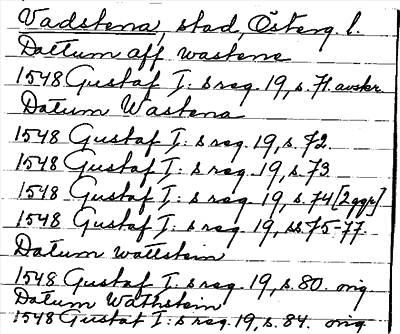 Vadstena, stad, Österg. l.
Dattum aff wastena
1548 Gustaf I: s reg. 19, s. 71. avskr.
Datum Wastena
1548 Gustaf I: s reg. 19, s. 72.
1548 Gustaf I: s reg. 19, s. 73
1548 Gustaf I: s reg. 19, s. 74 [2 ggr]
1548 Gustaf I: s reg. 19, ss. 75-77.
Datum wattstein
1548 Gustaf I: s reg. 19, s. 80. orig
Datum Wathstein
1548 Gustaf I: s reg. 19, s. 84. orig